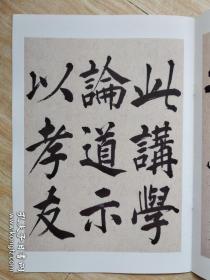 此講學
論道示
以孝友